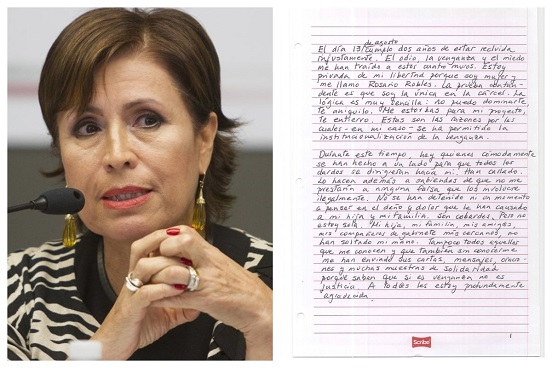 de agosto
El día 13/cumplo dos años de estar recluida
injustamente. El odio, la venganza y el miedo
me han traído a estos cuatro muros. Estoy
privada de mi libertad porque soy mujer y
me llamo Rosario Robles. La prueba contun-
dente es que soy la única en la cárcel. La
lógica es muy sencilla: no puedo dominarte,
te aniquilo. Me estorbas para mi proyecto,
te entierro. Estas son las razones por las
cuales -en mi caso- se ha permitido la
institucionalización de la venganza.
Durante este tiempo, hay quienes cómodamente
se han hecho a un lado para que todos los
dardos se dirigieran hacia mí. Han callado.
Lo hacen además a sabiendas de que no me
prestaría a ninguna farsa que los involucre
ilegalmente. No se han detenido ni un momento
a pensar en el daño y dolor que le han causado
a mi hija y mi familia. Son cobardes. Pero no
estoy sola. Mi hija, mi familia, mis amigas,
mis compañeros de gabinete más cercanos, no
han soltado mi mano. Tampoco todos aquellos
que me conocen y que también sin conocerme
me han enviado sus cartas, mensajes, oracio-
nes y muchas muestras de solidaridad
porque saben que si es venganza no es
justicia. A todos les estoy profundamente
agradecida.
Scribe
1